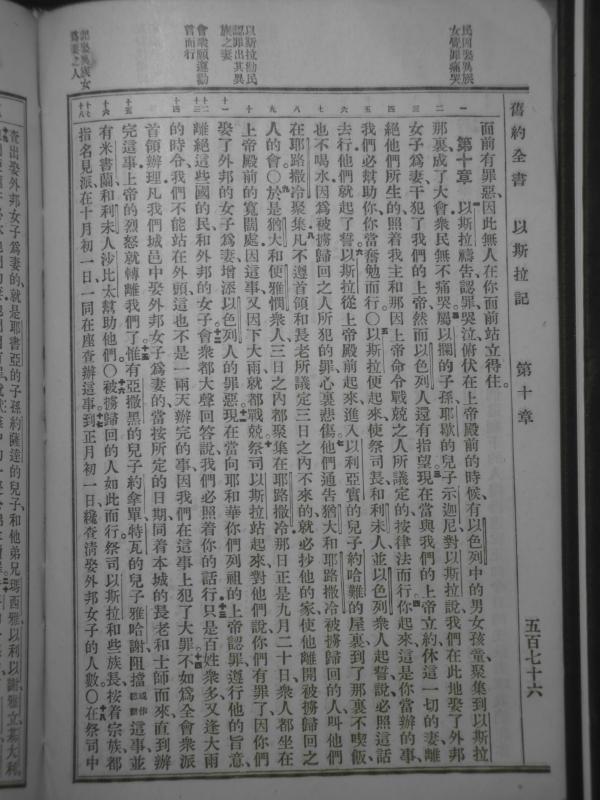 舊約全書 以斯拉記 第十章 五百七十六
民因娶異族
女覺罪痛哭
以斯拉勸民
認罪出其異
族之妻
會衆願遵勸
言而行
記娶異族女
為妻之人
面前有罪惡、因此無人在你面前站立得住。
一 第十章 以斯拉禱告認罪、哭泣、俯伏在上帝殿前的時候、有以色列中的男女孩童聚集到以斯拉
二 那裏、成了大會、衆民無不痛哭。屬以攔的子孫、耶歇的兒子示迦尼對以斯拉說、我們在此地娶了外邦
三 女子為妻、干犯了我們的上帝、然而以色列人還有指望。現在當與我們的上帝立約、休這一切的妻、離
四 絕他們所生的、照着我主和那因上帝命令戰兢之人所議定的、按律法而行。你起來、這是你當辦的事、
五 我們必幫助你、你當奮勉而行。〇以斯拉便起來、使祭司長和利未人、並以色列衆人起誓說、必照這話
六 去行、他們就起了誓。以斯拉從上帝殿前起來、進入以利亞實的兒子約哈難的屋裏、到了那裏不喫飯、
七 也不喝水、因為被擄歸回之人所犯的罪、心裏悲傷。他們通告猶大和耶路撒冷被擄歸回的人、叫他們
八 在耶路撒冷聚集、凡不遵首領和長老所議定、三日之內不來的、就必抄他的家、使他離開被擄歸回之
九 人的會。〇於是猶大和便雅憫衆人、三日之內都聚集在耶路撒冷、那日正是九月二十日、衆人都坐在
十 上帝殿前的寬闊處、因這事、又因下大雨、就都戰兢。祭司以斯拉站起來、對他們說、你們有罪了、因你們
十一 娶了外邦的女子為妻、增添以色列人的罪惡。現在當向耶和華你們列祖的上帝認罪、遵行他的旨意、
十二 十三 離絕這些國的民和外邦的女子。會衆都大聲回答說、我們必照着你的話行。只是百姓衆多、又逢大雨
十四 的時令、我們不能站在外頭、這也不是一兩天辦完的事、因我們在這事上犯了大罪。不如為全會衆派
首領辦理、凡我們城邑中娶外邦女子為妻的、當按所定的日期、同着本城的長老和士師而來、直到辦
十五 完這事、上帝的烈怒就轉離我們了。惟有亞撒黑的兒子約拿單、特瓦的兒子雅哈謝阻擋或作總辦這事、並
十六 有米書蘭和利未人沙比太幫助他們。〇被擄歸回的人如此而行、祭司以斯拉和些族長按着宗族都
十七 十八 指名見派、在十月初一日、一同在座查辦這事。到正月初一日、纔查清娶外邦女子的人數。〇在祭司中
查出娶外邦女子為妻的、就是耶書亞的子孫約薩達的兒子、和他弟兄瑪西雅、以利以謝、雅立、基大利、